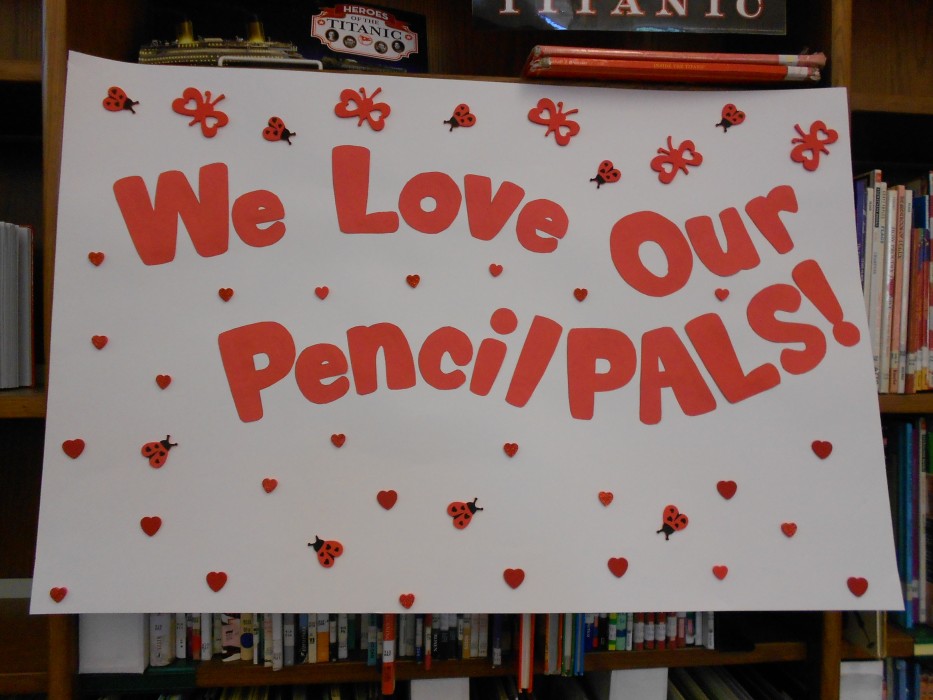 HEROES
OF THE
TITANIC
TITANIC
We Love Our
PencilPALS!